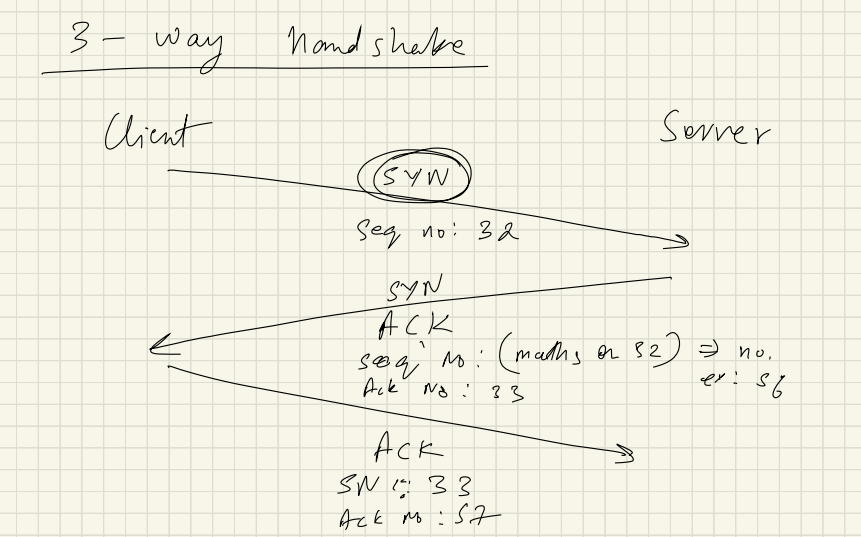 3 - way handshake
Client
Server
SYN
Seq no: 32
SYN
ACK
seq no: (maths on 32) => no.
Ack No: 33
ex: 56
ACK
SN: 33
Ack no: 57